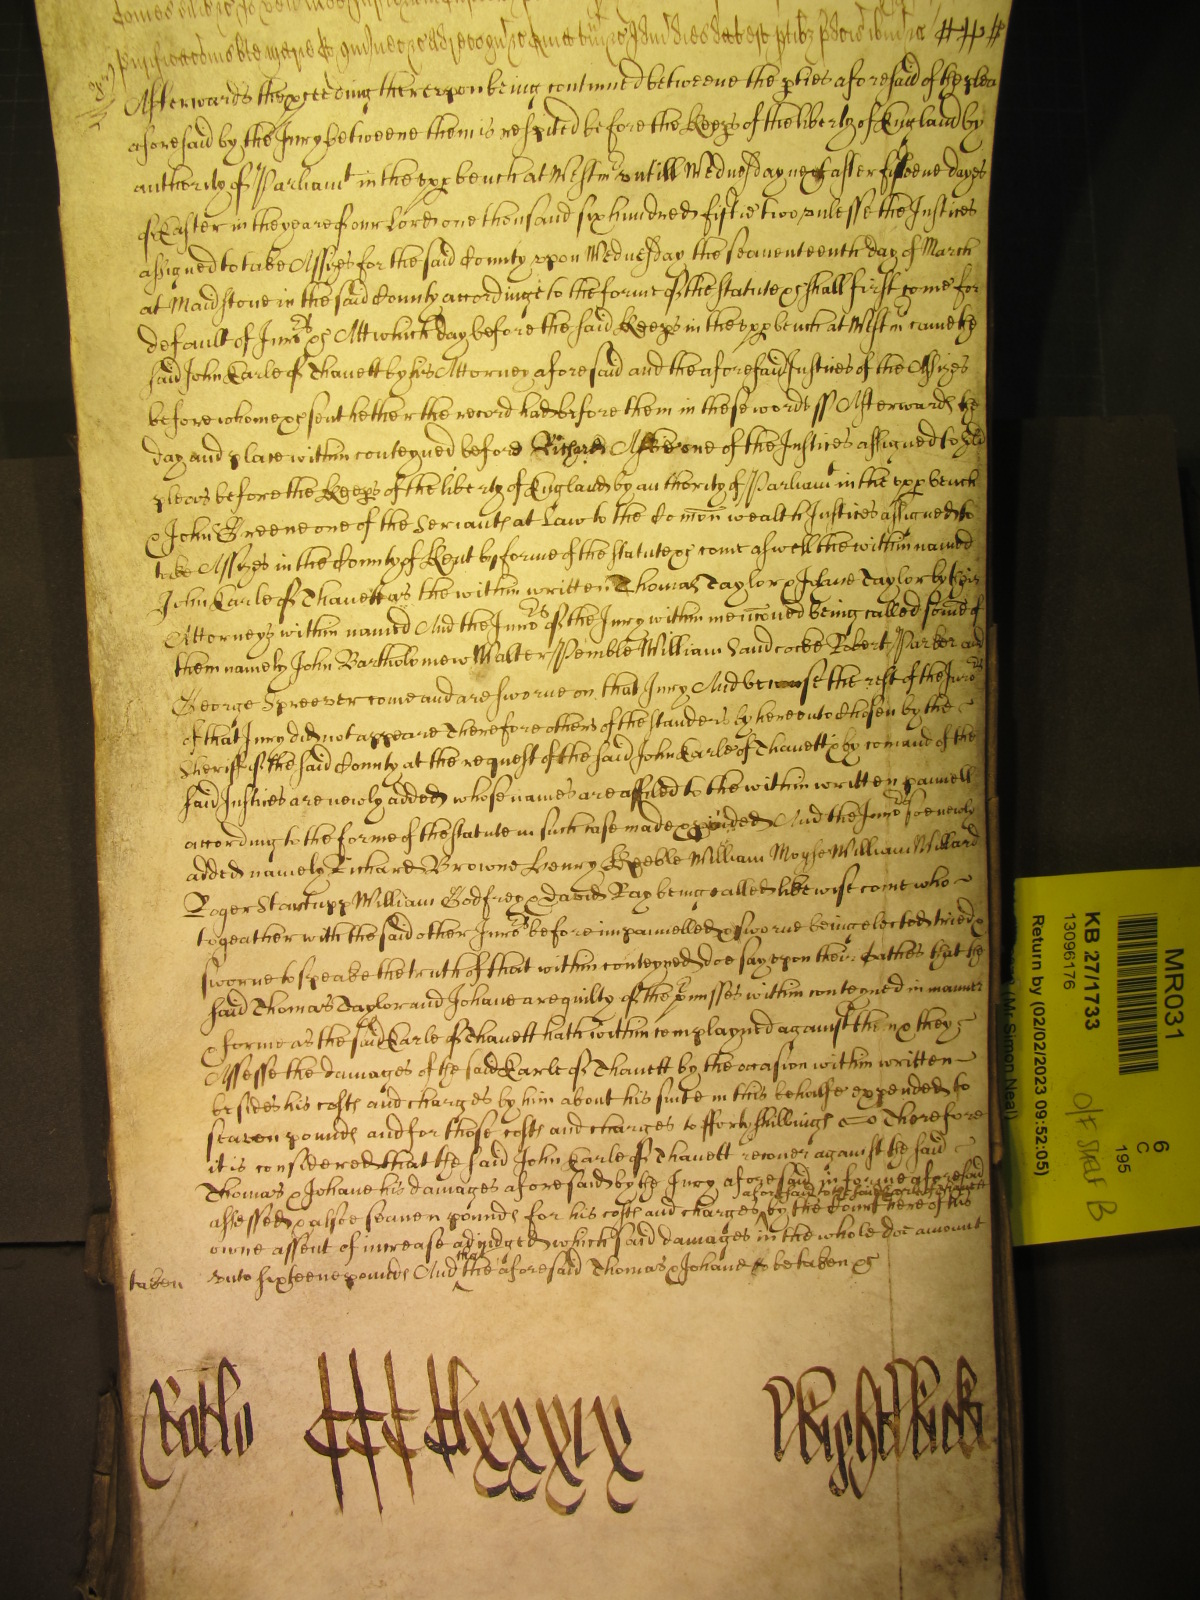 Afterwards the pceeding thereupon being continued betweene the pties aforesaid of the plea
aforesaid by the Jury betweene them is respited before the Keeps of the liberty of England by
authority of Parliamt in the upp bench at Westmr untill Wednesday next after fifteene dayes
of Easter in the yeare of our Lord one thousand six hundred fiftie two unlesse the Justices
assigned to take Assizes for the said County upon Wednesday the seaventeenth day of March
at Maidstone in the said County accordinge to the forme of the statute &c shall first come for
default of Jurors &c Att which day before the said Keeps in the upp bench at Westmr came the
said John Earle of Thanett by his Attorney aforesaid and the aforesaid Justices of the Assizes
before whome &c sent hether the record had before them in these words ss Afterwards the
day and place within conteyned before Richard Aske one of the Justices assigned to hold
pleas before the Keeps of the liberty of England by authority of Parliamt in the upp bench
& John Greene one of the Serjants at Law to the Comon wealth Justices assigned to
take Assizes in the County of Kent by forme of the statute &c come aswell the within named
John Earle of Thanett as the within written Thomas Taylor & Johane Taylor by their
Attorneys within named And the Jurors of the Jury within mencioned being called some of
them namely John Bartholomew Walter Pemble William Handcocke Robert Parker and
George Spreever come and are sworne on that Jury And because the rest of the Jurors
of that Jury did not appeare Therefore others of the standers by hereunto chosen by the
Sheriff of the said County at the request of the said John Earle of Thanett & by comand of the
said Justices are newly added whose names are affiled to the within written pannell
according to the forme of the statute in such case made & pvided And the Jurors soe newly
added namely Richard Browne Henry Keeble William Moyse William Willard
Roger Startupp William Godfrey & David Ray being called likewise come who
togeather with the said other Jurors before impannelled & sworne being elected tried &
sworne to speake the truth of that within conteyned doe say upon their Oathes that the
said Thomas Taylor and Johane are guilty of the pmisses within conteyned in manner
& forme as the said Earle of Thanett hath within complayned against them & they
Assesse the damages of the said Earle of Thanett by the occasion within written
besides his costs and charges by him about his suite in this behalfe expended to
seaven pounds and for those costs and charges to fforty shillings Therefore
it is considered that the said John Earle of Thanett recover against the said
Thomas & Johane his damages aforesaid by the Jury aforesaid in forme aforesaid
assessed & alsoe seaven pounds for his costs and charges aforesaid to the said Earle of Thanett by the Court here of his
owne assent of increase adjudged which said damages in the whole doe amount
taken unto sixteene pounds And that the aforesaid Thomas & Johane be taken &c
MR031
KB 27/1733
13096176
Return by (02/02/2023 09:52:05)
(Mr Simon Neal)
6
C
195
O/F SHELF B